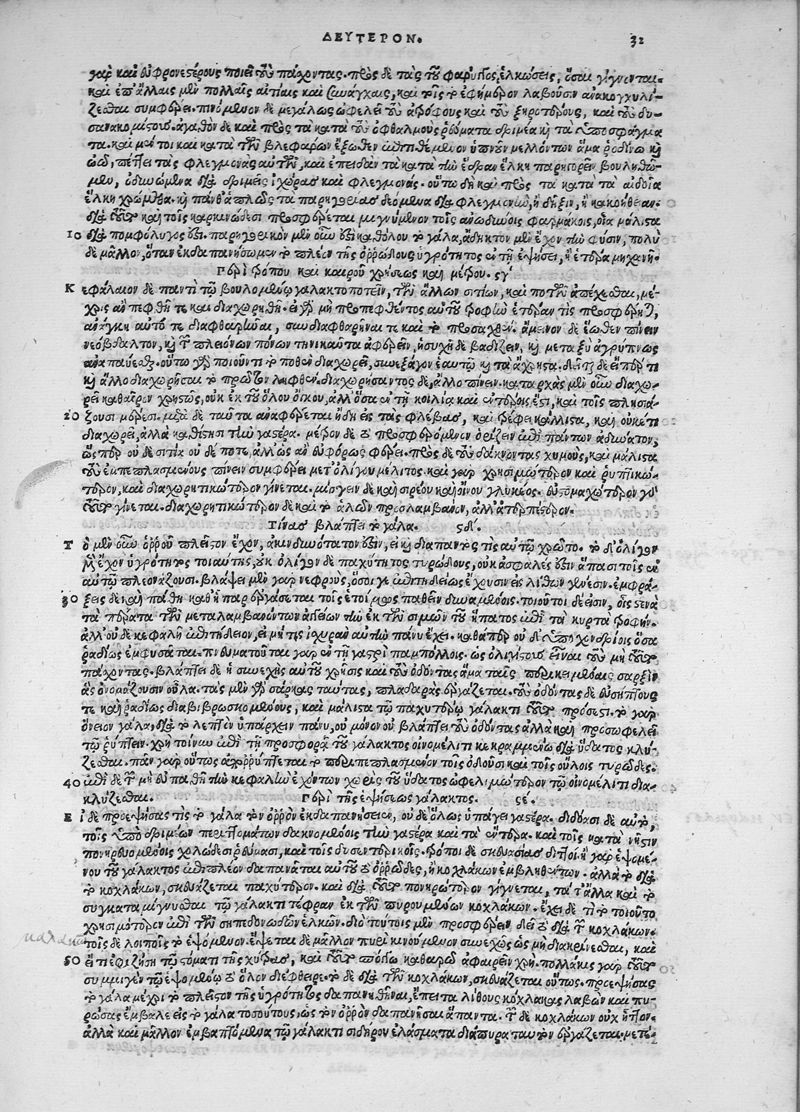 ΔΕΥΤΕΡΟΝ. 32
γὰρ καὶ εὐφρονεστέρους ποιεῖ τοὺς πάσχοντας. πρὸς δὲ τὰς τοῦ φάρυγγος ἑλκώσεις, ὅσαι γίγνονται
καὶ ἐπ' ἄλλαις μὲν πολλαῖς αἰτίαις καὶ συνάγχαις, καὶ τοῖς ἐφήμερον λαβοῦσιν ἀνακογχυλί-
ζεσθαι συμφέρει. πινόμενον δὲ μεγάλως ὠφελεῖ τοὺς ἀφόφους καὶ τοὺς ξηροτέρους, καὶ τοὺς δυ-
σανακομίστους. ἀγαθὸν δὲ καὶ πρὸς τὰ κατὰ τοὺς ὀφθαλμοὺς ῥεύματα δριμέα καὶ τὰ ὑποσφάγμα
τα. καὶ μέντοι καὶ κατὰ τῶν βλεφάρων ἔξωθεν ἐπιθέμενον ὑπνοῦν μελλόντων ἅμα ῥοδίνῳ καὶ
ὠῷ, πέττει τὰς φλεγμονὰς αὐτῶν, καὶ ἐπειδὰν τὰ κατὰ τὴν ἕδραν ἕλκη παρηγορεῖν βουληθῶ-
μεν, ὀδυνώμενα διὰ δριμεῖς ἰχῶρας καὶ φλεγμονάς. οὕτω δὴ καὶ πρὸς τὰ κατὰ τὰ αἰδοῖα
ἕλκη χρώμεθα. καὶ πάνθ' ἁπλῶς τὰ παρηγορίας δεόμενα διὰ φλεγμονὴν, ἢ δῆξιν, ἢ κακοήθειαν.
διὰ τοῦτο καὶ τοῖς καρκινώδεσι προσφέρεται μιγνύμενον τοῖς ἀνωδύνοις φαρμάκοις, οἷα μάλιστα
10 διὰ πομφόλυγός ἐστι. παρηγορικὸν μὲν οὖν ἐστι καθόλου τὸ γάλα, ἄδηκτον μὲν ἔχον τὴν φύσιν, πολὺ
δὲ μᾶλλον, ὅταν ἐκδαπανήσωμεν τὸ πλέον τῆς ὀρρώδους ὑγρότητος ἐν τῇ ἑψήσει, ἢ ἑτέρᾳ μηχανῇ.
Περὶ τρόπου καὶ καιροῦ χρήσεως καὶ μέτρου. ϟγ
Κεφάλαιον δὲ παντὶ τῷ βουλομένῳ γαλακτοποτεῖν, τῶν ἄλλων σιτίων, καὶ ποτῶν ἀπέχεσθαι, μέ-
χρις ἂν πεφθῇ τε καὶ διαχωρηθῇ. εἰ γὰρ μὴ προπεφθέντος αὐτοῦ τροφὴν ἑτέραν τις προσφέρηται,
ἀνάγκη αὐτό τε διαφθαρῆναι, συνδιαφθαρῆναί τε καὶ τὸ προσαχθέν. ἄμεινον δὲ ἕωθεν πίνειν
νεόβδαλτον, καὶ τῶν πλειόνων πόνων τηνικαῦτα ἀφαιρεῖν, ἡσυχῇ δὲ βαδίζειν, καὶ μεταξὺ ἀγρύπνως
ἀναπαύεσθαι. οὕτω γὰρ ποιοῦντι τὸ ποθὲν διαχωρεῖ, συνεξάγον ἑαυτῷ καὶ τὰ ἄχρηστα. δεῖται δὲ εἴπερ τι
καὶ ἄλλο διαχωρῆσαι τὸ πρῶτον ληφθέν. διαχωρήσαντος δὲ, ἄλλο πίνειν. κατ' ἀρχὰς μὲν οὖν διαχω-
ρεῖ καθαῖρον χρηστῶς, οὐκ ἐκ τοῦ ὅλου ὄγκου, ἀλλ' ὅσα ἐν τῇ κοιλίᾳ καὶ ἐντέροις ἐστὶ, καὶ τοῖς πλησιά-
20 ζουσι μέρεσι. μετὰ δὲ ταῦτα ἀναφέρεται ἤδη εἰς τὰς φλέβας, καὶ τρέφει κάλλιστα, καὶ οὐκέτι
διαχωρεῖ, ἀλλὰ καθίστησι τὴν γαστέρα. μέτρον δὲ τοῦ προσφερομένου ὁρίζειν ἐπὶ πάντων ἀδύνατον,
ὥσπερ οὐδὲ σιτία οὐδέ ποτε, ἀλλ' ὡς ἂν εὐφόρως φέρει. πρὸς δὲ τοὺς δάκνοντας χυμοὺς, καὶ μάλιστα
τοὺς ἐμπεπλασμένους πίνειν συμφέρει μετ' ὀλίγου μέλιτος. καὶ γὰρ χρησιμώτερον καὶ ῥυπτικώ-
τερον, καὶ διαχωρητικώτερον γίνεται. μίσγειν δὲ καὶ σιραίου καὶ οἴνου γλυκέος. εὐστομαχώτερον γὰρ
τοῦτο γίνεται. διαχωρητικώτερον δὲ καὶ τὸ ἁλῶν προσλαμβάνον, ἀλλ' ἀτερπέστερον.
Τίνας βλάπτει τὸ γάλα. ϟδ.
Τὸ μὲν οὖν ὀρροῦ πλεῖστον ἔχον, ἀκινδυνότατόν ἐστιν, εἰ καὶ διαπαντός τις αὐτῷ χρῷτο. τὸ δ' ὀλίγον
μὲν ἔχον ὑγρότητος τοιαύτης, οὐκ ὀλίγον δὲ παχύτητος τυρώδους, οὐκ ἀσφαλές ἐστιν ἅπασι τοῖς ἐν
αὐτῷ πλεονάζουσι. βλάψει μὲν γὰρ νεφροὺς, ὅσοι γε ἐπιτηδείως ἔχουσιν εἰς λίθων γένεσιν. ἐμφρά-
30 ξεις δὲ καὶ πάθη καθ' ἧπαρ ἐργάσεται τοῖς ἑτοίμως παθεῖν δυναμένοις. τοιοῦτοι δέ εἰσιν, οἷς στενὰ
τὰ πέρατα τῶν μεταλαμβανόντων ἀγγείων τὴν ἐκ τῶν σιμῶν τοῦ ἥπατος ἐπὶ τὰ κυρτὰ τροφήν.
ἀλλ' οὐδὲ κεφαλῇ ἐπιτήδειον, εἰ μή τις ἰσχυρὰν αὐτὴν πάνυ ἔχει. καθάπερ οὐδ' ὑποχονδρίοις ὅσα
ῥᾳδίως ἐμφυσᾶται. πνευματοῦται γὰρ ἐν τῇ γαστρὶ παμπόλλοις. ὡς ὀλιγίστους εἶναι τοὺς μὴ τοῦτο
πάσχοντας. βλάπτει δὲ ἡ συνεχὴς αὐτοῦ χρῆσις καὶ τοὺς ὀδόντας ἅμα ταῖς περικειμέναις σαρξὶν
ἃς ὀνομάζουσιν οὖλα. τὰς μὲν γὰρ σάρκας ταύτας, πλαδαρὰς ἐργάζεται. τοὺς ὀδόντας δὲ εὐσήπτους
τε καὶ ῥᾳδίως διαβιβρωσκομένους, καὶ μάλιστα τῷ παχυτέρῳ γάλακτι τοῦτο πρόσεστι. τὸ γὰρ
ὄνειον γάλα, διὰ τὸ λεπτὸν ὑπάρχειν πάνυ, οὐ μόνον οὐ βλάπτει τοὺς ὀδόντας ἀλλὰ καὶ προσωφελεῖ
τῷ ῥύπτειν. χρὴ τοίνυν ἐπὶ τῇ προσφορᾷ τοῦ γάλακτος οἰνομέλιτι κεκραμμένῳ διὰ ὕδατος κλύ-
ζεσθαι. πᾶν γὰρ οὕτως ἀπορρύπτεται τὸ περιπεπλασμένον τοῖς ὀδοῦσι καὶ τοῖς οὔλοις τυρῶδες.
40 ἐπὶ δὲ τῶν μὴ εὐπαθῆ τὴν κεφαλὴν ἐχόντων χωρὶς τοῦ ὕδατος ὠφελιμώτερον τῷ οἰνομέλιτι δια-
κλύζεσθαι. Περὶ τῆς ἑψήσεως γάλακτος. ϟε.
Εἰ δὲ προεψήσας τις τὸ γάλα τὸν ὀρρὸν ἐκδαπανήσειεν, οὐδὲ ὅλως ὑπάγει γαστέρα. διδόασι δὲ αὐτὸ,
τοῖς ὑπὸ δριμέων περιττωμάτων δακνομένοις τὴν γαστέρα καὶ τὰ ἔντερα. καὶ τοῖς κατὰ νῆστιν
πονηρευομένοις χολώδεσι ῥεύμασι, καὶ τοῖς δυσεντερικοῖς. τρόποι δὲ σκευασίας διττοί. ἢ γὰρ ἑψομέ-
νου τοῦ γάλακτος ἐπιπλέον δαπανᾶται αὐτοῦ τὸ ὀρρῶδες, ἢ κοχλάκων ἐμβληθέντων. ἀλλὰ τὸ διὰ
τῶν κοχλάκων, σκευάζεται παχύτερον. καὶ διὰ τοῦτο πονηρότερον γίγνεται, τά τ' ἄλλα καὶ τὸ
συγκαταμίγνυσθαι τῷ γάλακτι τέφραν ἐκ τῶν πυρουμένων κοχλάκων. ἔχει δέ τι τὸ τοιοῦτο
χρησιμώτερον ἐπὶ τῶν σηπεδονωδῶν ἑλκῶν. διὸ τούτοις μὲν προσφέρειν δεῖ τὸ διὰ τῶν κοχλάκων.
τοῖς δὲ λοιποῖς τὸ ἑψόμενον. ἕψεται δὲ μᾶλλον πυρὶ κινούμενον συνεχῶς ὡς μὴ διακρίνεσθαι, καὶ
50 εἴ τι ἐφιζήσῃ τῷ στόματι τῆς χύτρας, καὶ τοῦτο πτερῷ καθαρῷ ἀφαιρεῖν χρή. πολλάκις γὰρ τοῦτο
συμμιγὲν τῷ ἑψομένῳ τὸ ὅλον διέφθειρε. τὸ δὲ διὰ τῶν κοχλάκων, σκευάζεται οὕτως. προεψήσας
τὸ γάλα μέχρι τὸ πλεῖστον τῆς ὑγρότητος δαπανηθῆναι, ἔπειτα λίθους κόχλακας λαβὼν καὶ πυ-
ρώσας ἔμβαλε εἰς τὸ γάλα τοσούτους, ὡς τὸν ὀρρὸν δαπανῆσαι ἅπαντα. τῶν δὲ κοχλάκων οὐχ ἧττον
ἀλλὰ καὶ μᾶλλον ἐμβαπτόμενα τῷ γάλακτι σιδήρου ἐλάσματα διάπυρα ταυτὸν ἐργάζεται. μετέ-